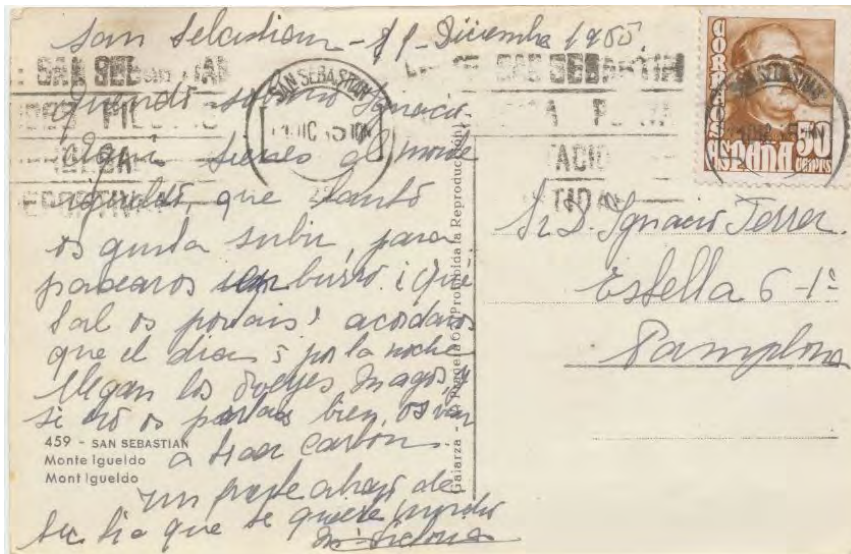 San Sebastian - Diciembre 1955
Querido sobrino Ignacio
Aquí tienes al monte
Igueldo, que tanto
os gusta subir, para
pasearos en burro. ¡Qué
tal os portais? acordaros
que el dia 5 por la noche
llegan los Reyes Magos, y
si no os portais bien, os van
a traer carbon.
Un fuerte abrazo de
tu tia que te quiere mucho
Mª Victoria
459 - SAN SEBASTIAN
Monte Igueldo
Mont Igueldo
Galarza - Prohibida la Reproducción
SAN SEBASTIAN
DIC
SAN SEBASTIAN
CORREOS
ESPAÑA 50
CENTS
Sr. D. Ignacio Ferrer
Estella 6-1º
Pamplona